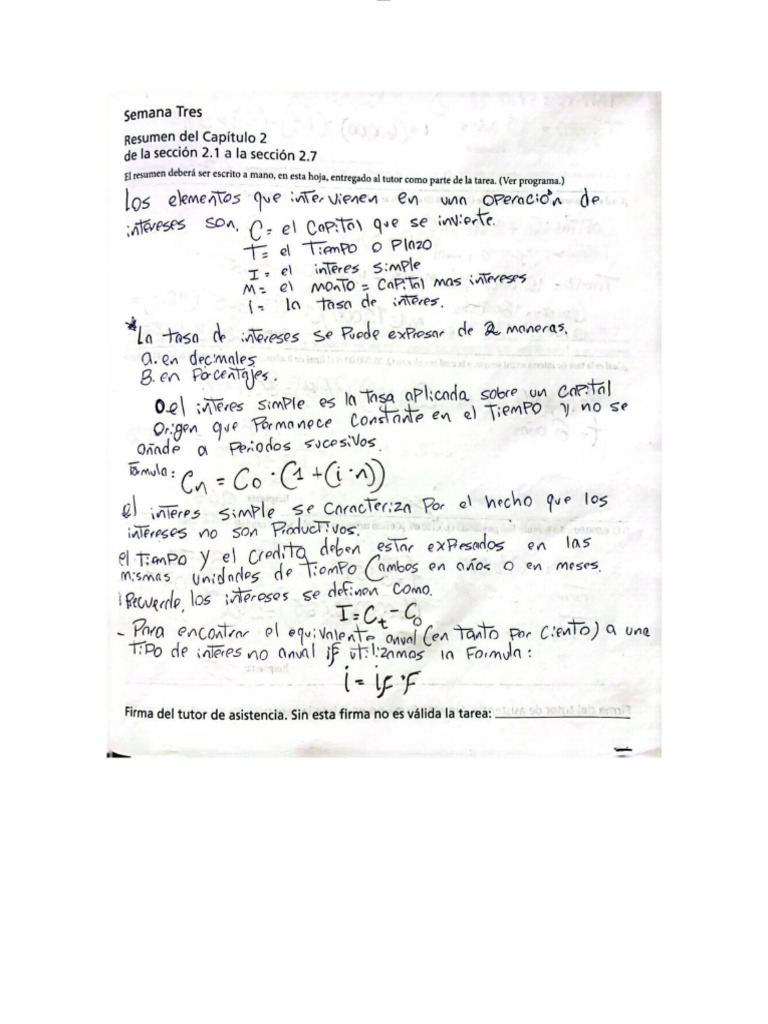 Semana Tres
Resumen del Capítulo 2
de la sección 2.1 a la sección 2.7
El resumen deberá ser escrito a mano, en esta hoja, entregado al tutor como parte de la tarea. (Ver programa.)
Los elementos que intervienen en una operación de
intereses son, C= el capital que se invierte.
T= el Tiempo o Plazo
I= el interes simple
M= el monto = capital mas intereses
i= la tasa de interes.
*La tasa de intereses se puede expresar de 2 maneras.
a. en decimales
B. en Porcentajes.
O.el interes simple es la tasa aplicada sobre un capital
origen que permanece constante en el Tiempo y no se
añade a Periodos sucesivos.
Formula: Cn = Co · (1+(i·n))
el interes simple se caracteriza por el hecho que los
intereses no son Productivos.
el tiempo y el credito deben estar expresados en las
mismas unidades de Tiempo (ambos en años o en meses.
¡Recuerde, los intereses se definen como.
I=Ct-Co
- Para encontrar el equivalente anual (en tanto por ciento) a una
tipo de interes no anual if utilizamos la Formula:
i = if·F
Firma del tutor de asistencia. Sin esta firma no es válida la tarea: